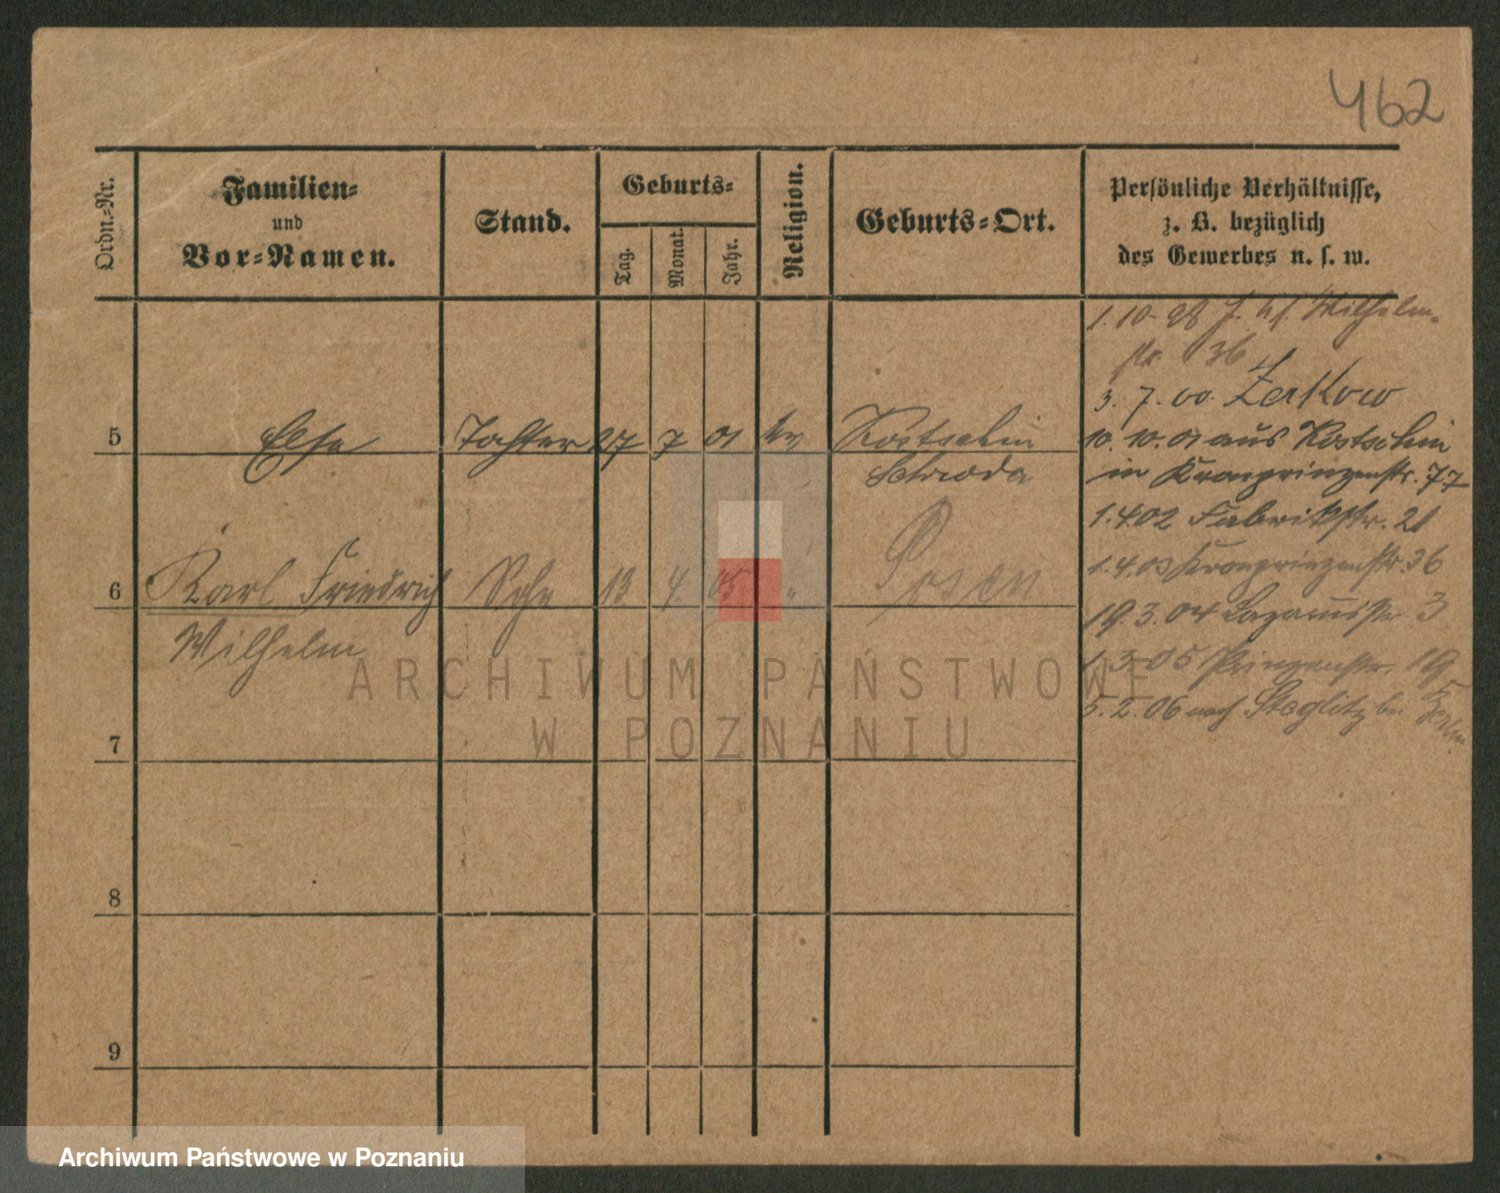 462
Ordn.-Nr.
Familien-
und
Vor-Namen.
Stand.
Geburts-
Tag.
Monat.
Jahr.
Religion.
Geburts-Ort.
Persönliche Verhältnisse,
z. B. bezüglich
des Gewerbes u. s. w.
1. 10. 98 Wilhelm-
str. 36
3. 7. 00. Zerkow
5 Else Tochter 27 7 01 ev Kostschin
Schroda
10. 10. 01 aus Kostschin
in Kronprinzenstr. 77
1.4.02 Fabrikstr. 21
6 Karl Friedrich Sohn 13 4 05 " Posen
Wilhelm
1.4.03 Kronprinzenstr. 36
19.3.04 Lazarusstr 3
1.3.05 Prinzenstr. 19
5.2.06 nach Steglitz bei Berlin
7
8
9
ARCHIWUM PAŃSTWOWE
W POZNANIU
Archiwum Państwowe w Poznaniu